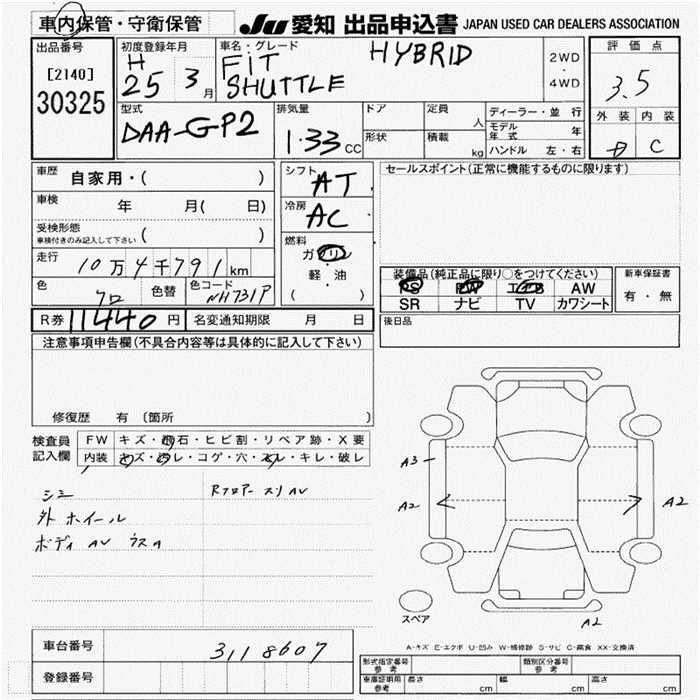 車内保管・守衛保管
JU 愛知 出品申込書 JAPAN USED CAR DEALERS ASSOCIATION
出品番号
[2140]
30325
初度登録年月
H
25 3月
車名・グレード
FiT HYBRID
SHUTTLE
2WD
・
4WD
評価点
3.5
外装 内装
C
型式
DAA-GP2
排気量
1.33 CC
ドア
定員
人
形状
積載
kg
ディーラー・並行
モデル年式 年
ハンドル 左・右
車歴
自家用・( )
車検
年 月( 日)
受検形態
車検付きのみ記入して下さい ( )
走行
10万4千791km
色
クロ
色替
色コード
NH731P
シフト
AT
冷房
AC
燃料
ガソリン
軽・油
( )
セールスポイント(正常に機能するものに限ります)
装備品(純正品に限り○をつけてください)
PS PW エアB AW
SR ナビ TV カワシート
新車保証書
有・無
後日品
R券 11440円 名変通知期限 月 日
注意事項申告欄(不具合内容等は具体的に記入して下さい)
修復歴 有 〔箇所 〕
検査員
記入欄
FW キズ・飛石・ヒビ割・リペア跡・X要
内装 キズ・汚レ・コゲ・穴・スレ・キレ・破レ
シミ
外 ホイール
ボディ AV ウスA
Rフロアー スリ AV
A3
A2
A2
A2
スペア
A-キズ E-エクボ U-凹み W-補修跡 S-サビ C-腐食 XX-交換済
車台番号
3118607
登録番号
型式指定番号
参考
類別区分番号
参考
車庫証明用
参考
長さ cm 幅 cm 高さ cm